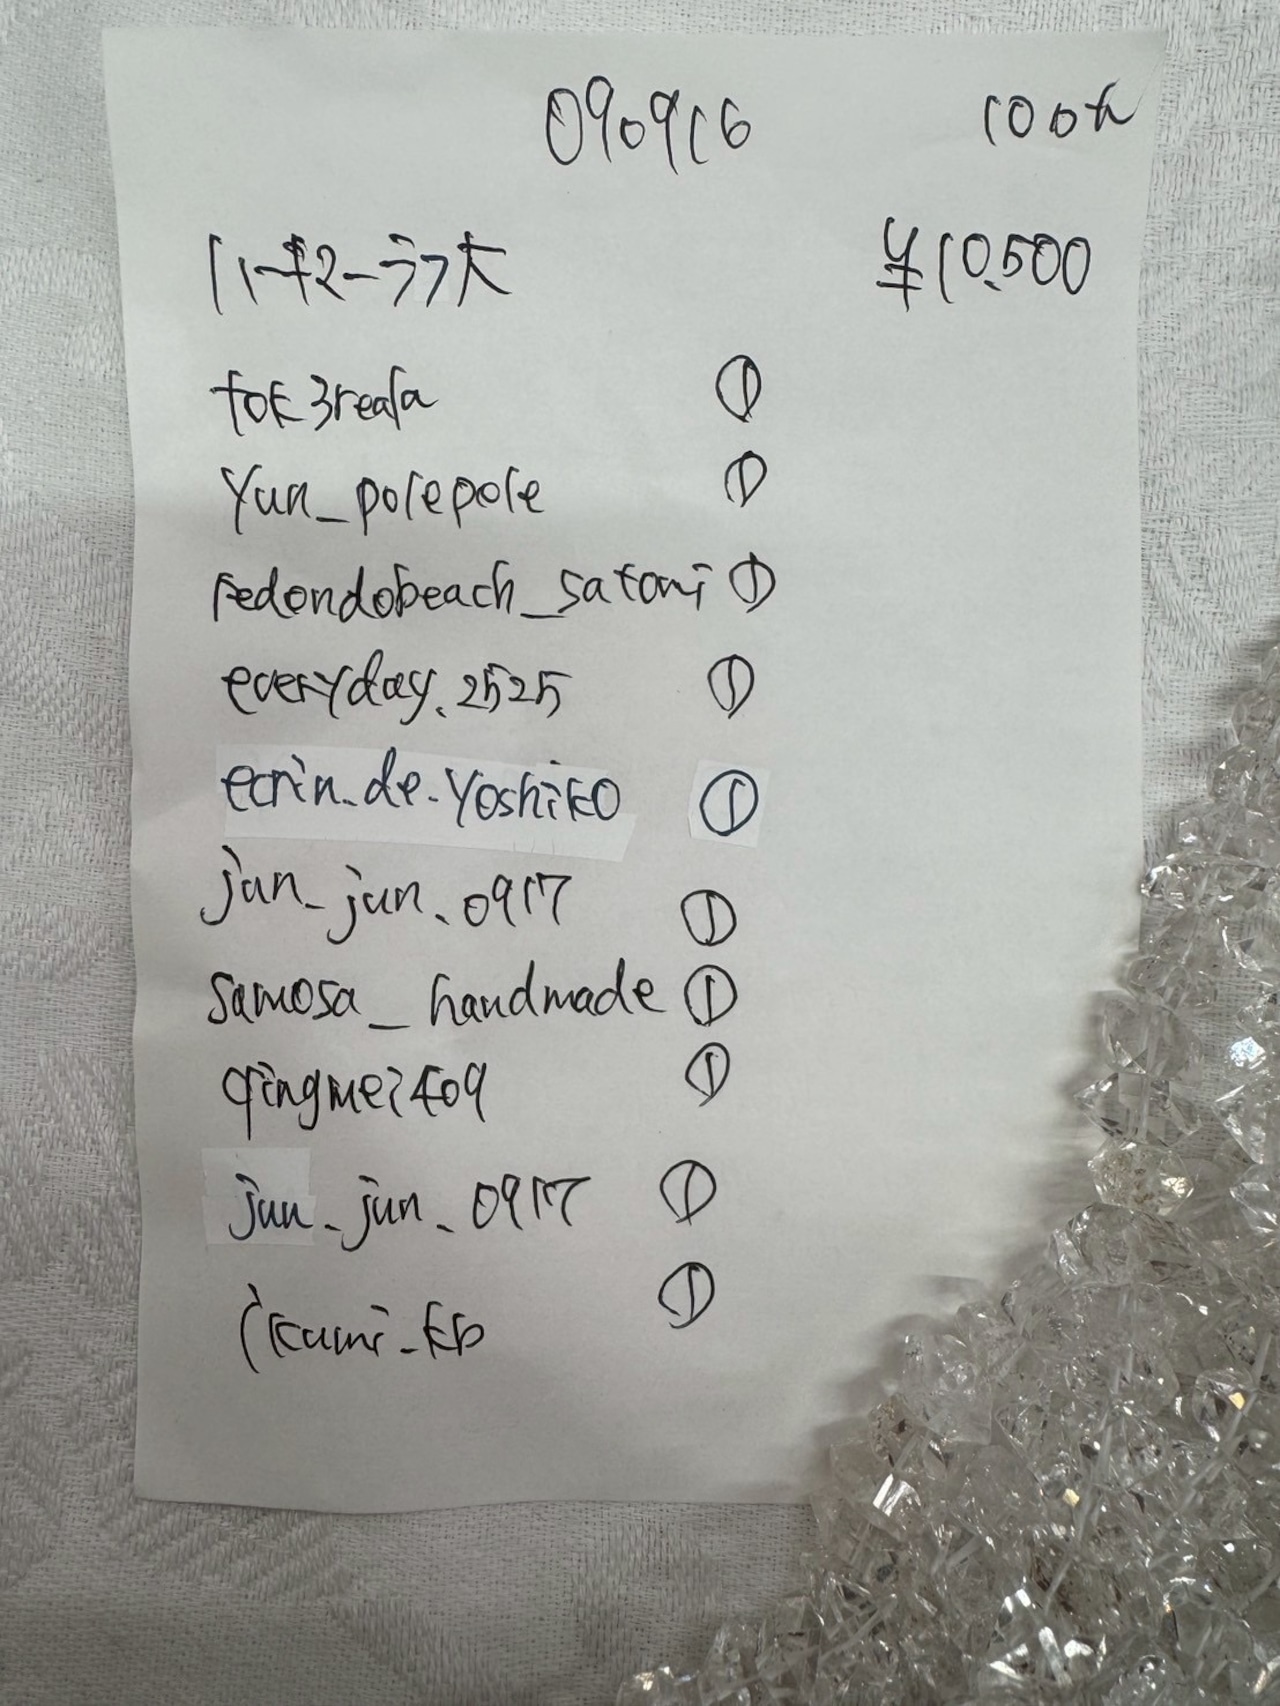 090916 100h
ハーキマーラフ大 ¥10.500
tok3reala ①
Yun_polepole ①
redondobeach_satomi ①
everyday.2525 ①
ecrin.de.yoshiko ①
jun_jun.0917 ①
samosa_handmade ①
qingmei409 ①
jun_jun.0917 ①
ikumi_kb ①